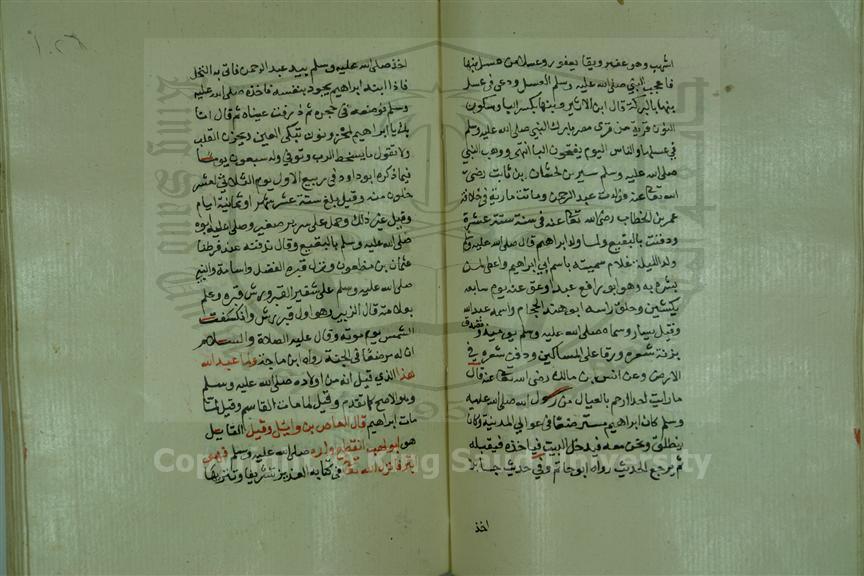 اشهب وهو عفير ويقال يعفور وعسلا من عسل بنها
فاعجب النبي صلى الله عليه وسلم العسل ودعى في عسل
بنها بالبركة قال ابن الاثير وبنها بكسر الباء وسكون
النون قرية من قرى مصر بارك النبي صلى الله عليه وسلم
في عسلها والناس اليوم يفتحون الباء انتهى ووهب النبي
صلى الله عليه وسلم سيرين لحسان بن ثابت رضي
الله تعا عنه فولدت عبد الرحمن وماتت مارية في خلافة
عمر بن الخطاب رضي الله تعا عنه في سنة ستة عشرة
ودفنت بالبقيع ولما ولد ابراهيم قال صلى الله عليه وسلم
ولد الليلة غلام سميته باسم ابي ابراهيم واعطى لمن
بشره به وهو ابو رافع عبدا وعق عنه يوم سابعه
بكبشين وحلق راسه ابو هند الحجام واسمه عبد الله
وقيل يسار وسماه صلى الله عليه وسلم يومئذ وتصدق
بزنة شعره ورقا على المساكين ودفن شعره في
الارض وعن انس بن مالك رضي الله تعا عنه قال
ما رايت احدا ارحم بالعيال من رسول الله صلى الله عليه
وسلم كان ابراهيم مسترضعا في عوالي المدينة وكان
ينطلق ونحن معه فيدخل البيت فياخذه فيقبله
ثم يرجع الحديث رواه ابو حاتم وفي حديث جابر
اخذ
اخذ صلى الله عليه وسلم بيد عبد الرحمن فاتى به النخل
فاذا ابنه ابراهيم يجود بنفسه فاخذه صلى الله عليه
وسلم فوضعه في حجره ثم ذرفت عيناه ثم قال انا
بك يا ابراهيم لمحزونون تبكي العين ويحزن القلب
ولا نقول ما يسخط الرب وتوفي وله سبعون يوما
فيما ذكره ابو داود في ربيع الاول يوم الثلاثا لعشر
خلون منه وقيل بلغ ستة عشر شهرا وثمانية ايام
وقيل غير ذلك وحمل على سرير صغير وصلى عليه ابوه
صلى الله عليه وسلم بالبقيع وقال ندفنه عند فرطنا
عثمان بن مظعون ونزل قبره الفضل واسامة والنبي
صلى الله عليه وسلم على شفير القبر ورش قبره وعلم
بعلامة قال الزبير وهو اول قبر رش وانكسفت
الشمس يوم موته وقال عليه الصلاة والسلام
ان له مرضعا في الجنة رواه ابن ماجه وما عبد الله
هذا الذي قيل انه من اولاده صلى الله عليه وسلم
وهو الاصح كما تقدم وقيل لما مات القاسم وقيل لما
مات ابراهيم قال العاص بن وائل وقيل القايل
هو ابو لهب انقطع ولده صلى الله عليه وسلم فهو
ابتر فانزل الله تعا في كتابه العزيز تشريفا وتنزيها
King Saud University